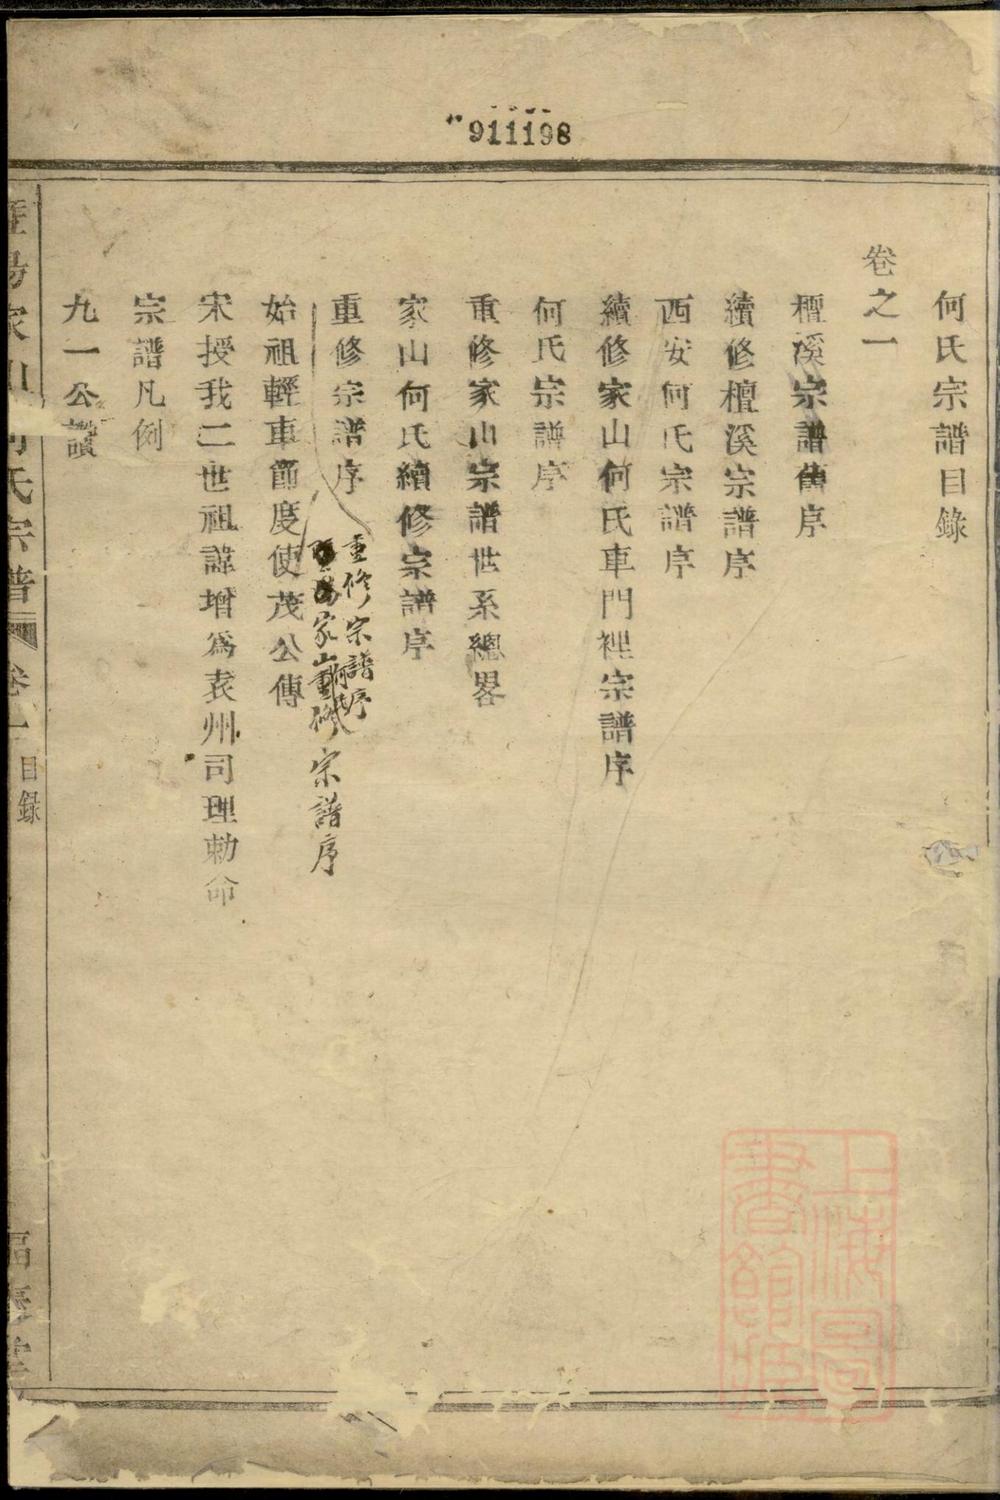 911198
何氏宗譜目錄
卷之一
檀溪宗譜舊序
續修檀溪宗譜序
西安何氏宗譜序
續修家山何氏車門裡宗譜序
何氏宗譜序
重修家山宗譜世系總畧
家山何氏續修宗譜序
重修宗譜序
重修宗譜序
家山重修宗譜序
何氏
始祖輕車節度使茂公傳
宋授我二世祖諱增爲袁州司理勅命
宗譜凡例
九一公讚
陽家山何氏宗譜 卷一 目錄
上海圖書館藏